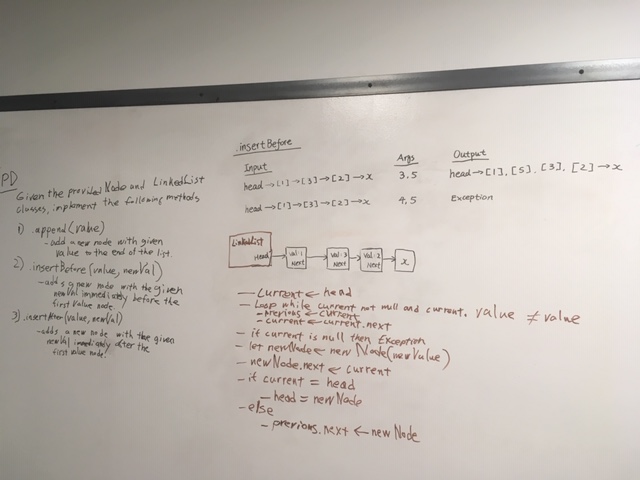 PD
Given the provided Node and LinkedList
classes, implement the following methods
1) .append(value)
- add a new node with given
value to the end of the list.
2) .insertBefore(value, newVal)
- adds a new node with the given
newVal immediately before the
first value node.
3) .insertAfter(value, newVal)
- adds a new node with the given
newVal immediately after the
first value node.
.insertBefore
Input Args Output
head→[1]→[3]→[2]→x 3,5 head→[1], [5], [3], [2]→x
head→[1]→[3]→[2]→x 4,5 Exception
LinkedList
Head
val:1
Next
val:3
Next
val:2
Next
x
- Current ← head
- Loop while current not null and current. value ≠ value
- previous ← current
- current ← current.next
- if current is null then Exception
- let newNode ← new Node(newValue)
- newNode.next ← current
- if current = head
- head = newNode
- else
- previous.next ← newNode